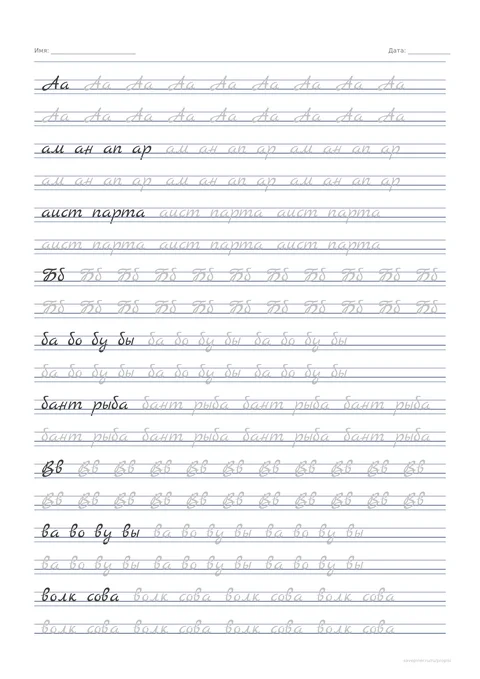 Имя: Дата:
Аа Аа Аа Аа Аа Аа Аа Аа Аа
Аа Аа Аа Аа Аа Аа Аа Аа Аа
ам ан ап ар ам ан ап ар ам ан ап ар
ам ан ап ар ам ан ап ар ам ан ап ар
аист парта аист парта аист парта
аист парта аист парта аист парта
Бб Бб Бб Бб Бб Бб Бб Бб Бб Бб Бб
Бб Бб Бб Бб Бб Бб Бб Бб Бб Бб Бб
ба бо бу бы ба бо бу бы ба бо бу бы
ба бо бу бы ба бо бу бы ба бо бу бы
бант рыба бант рыба бант рыба бант рыба
бант рыба бант рыба бант рыба бант рыба
Вв Вв Вв Вв Вв Вв Вв Вв Вв Вв Вв
Вв Вв Вв Вв Вв Вв Вв Вв Вв Вв Вв
ва во ву вы ва во ву вы ва во ву вы
ва во ву вы ва во ву вы ва во ву вы
волк сова волк сова волк сова волк сова
волк сова волк сова волк сова волк сова